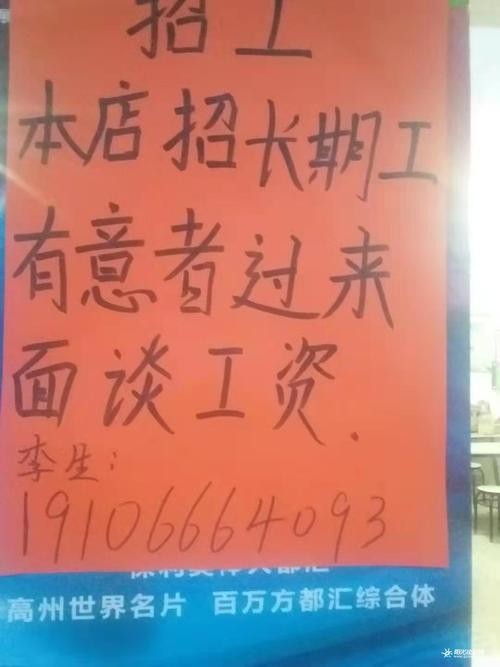 招工
本店招长期工
有意者过来
面谈工资.
李生：
19106664093
高州世界名片 百万方都汇综合体